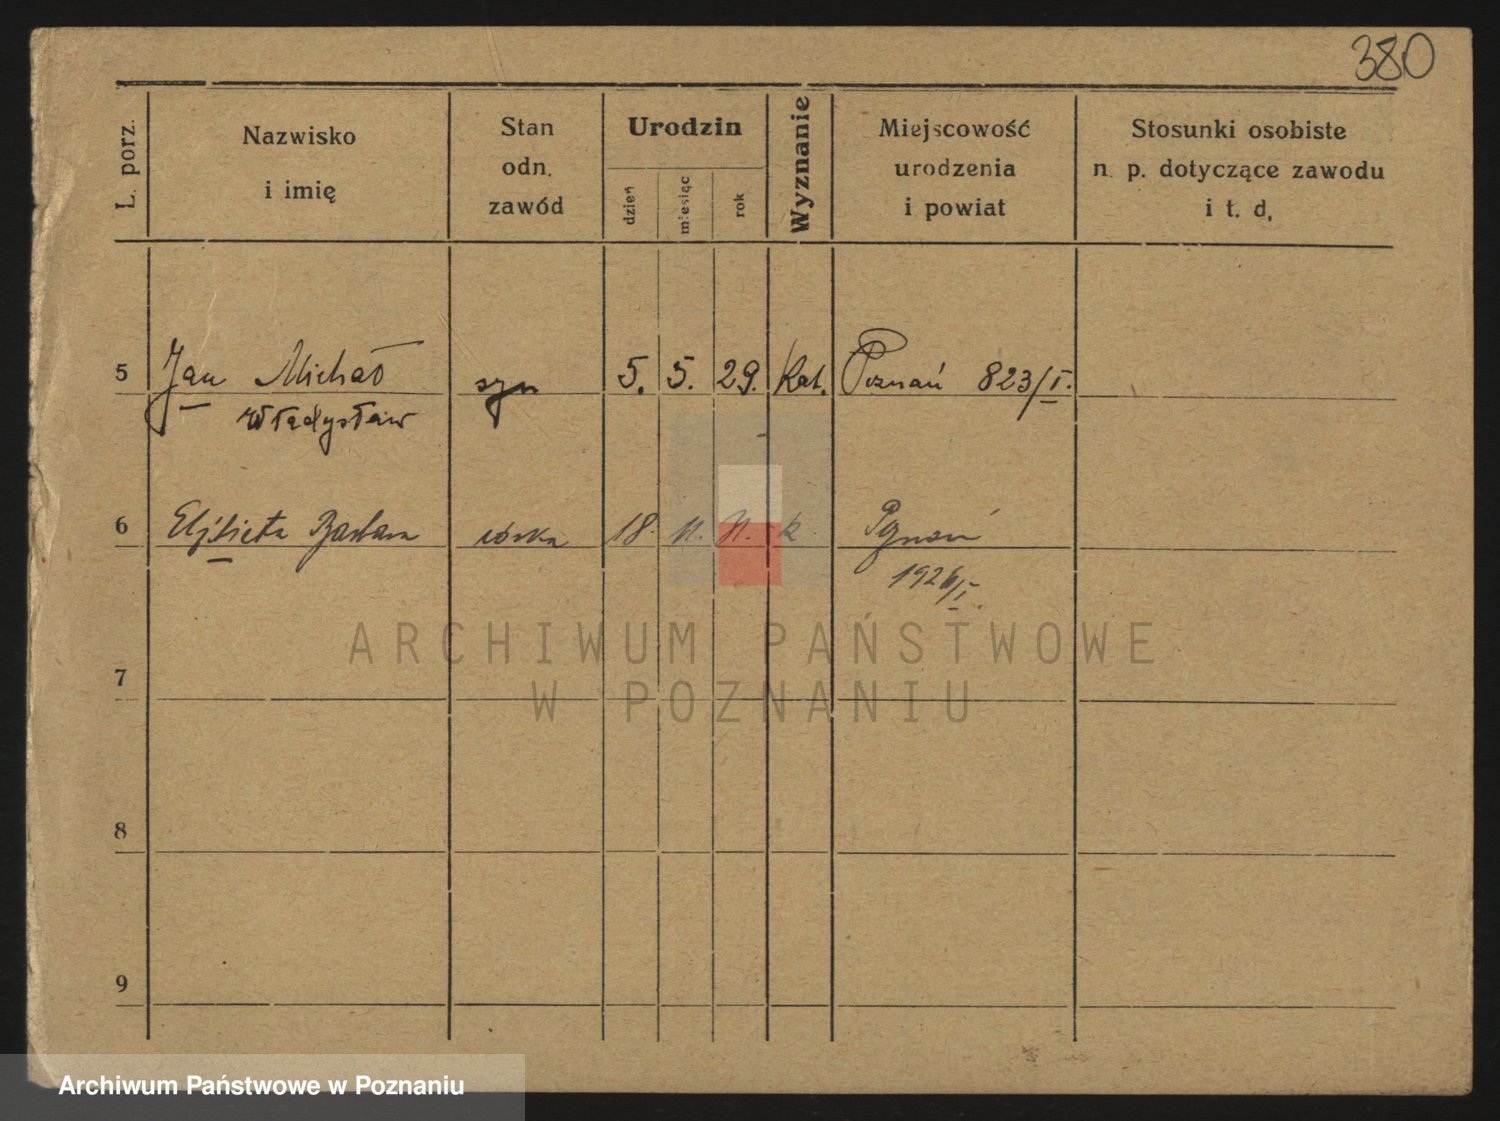 380
L. porz.
Nazwisko
i imię
Stan
odn.
zawód
Urodzin
dzień
miesiąc
rok
Wyznanie
Miejscowość
urodzenia
i powiat
Stosunki osobiste
n. p. dotyczące zawodu
i t. d.
5 Jan Michał syn 5. 5. 29. Kat. Poznań 823/I.
Władysław
6 Elżbieta Barbara córka 18. k Poznań
1926/I.
ARCHIWUM PAŃSTWOWE
7
W POZNANIU
8
9
Archiwum Państwowe w Poznaniu